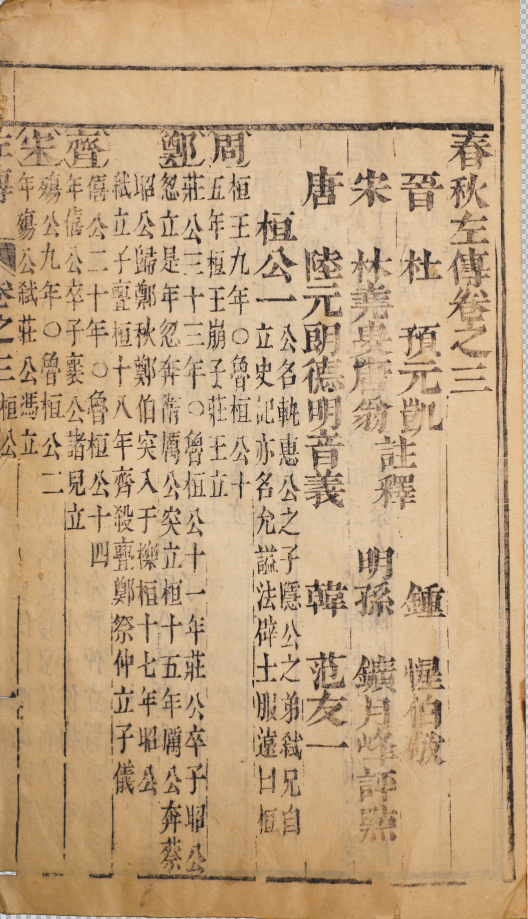 春秋左傳卷之三
晉 杜 預元凱 註釋 鍾 惺伯敬
宋 林堯叟唐翁 註釋 明孫 鑛月峰評點
唐 陸元朗德明音義 韓 范友一
桓公一 公名軌惠公之子隱公之弟弒兄自
立史記亦名允謚法辟土服遠曰桓
周 桓王九年〇魯桓公十
五年桓王崩子莊王立
鄭 莊公三十三年〇魯桓公十一年莊公卒子昭公
忽立是年忽奔衛厲公突立桓十五年厲公奔蔡
昭公歸鄭秋鄭伯突入于櫟桓十七年昭公
弒立子亹桓十八年齊殺亹鄭祭仲立子儀
齊 僖公二十年〇魯桓公十四
年僖公卒子襄公諸兒立
宋 殤公九年〇魯桓公二
年殤公弒莊公馮立
左傳 卷之三 桓公 一